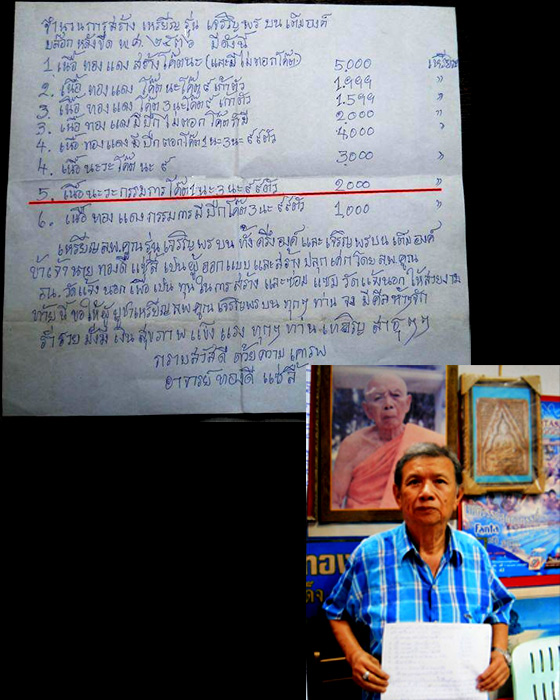 จำนวนการสร้าง เหรียญ รุ่น เจริญพรบน เต็มองค์
บล็อก หลังขีด พ.ศ. ๒๕๓๖ มีดังนี้
1. เนื้อ ทองแดง สร้างโค๊ตนะ (และมีไม่ตอกโค๊ต) 5,000 เหรียญ
2. เนื้อ ทองแดง โค๊ตนะ ๙ เก้าตัว 1,999 "
3. เนื้อ ทองแดง โค๊ต 3 นะ ๙ เก้าตัว 1,599 "
3. เนื้อ ทองแดง มีปีก ไม่ตอก โค๊ตก็มี 2,000 "
4. เนื้อ ทองแดง มีปีก ตอกโค๊ต 1 นะ 3 นะ ๙๙ตัว 4,000 "
4. เนื้อ นะวะ โค๊ต นะ ๙ 3,000 "
5. เนื้อ นะวะ กรรมการ โค๊ต 1 นะ 3 นะ ๙๙ตัว 2,000 "
6. เนื้อ ทองแดง กรรมการ มีปีก โค๊ต 3 นะ ๙๙ตัว 1,000 "
เหรียญ ลพ.คูณ รุ่น เจริญพรบน ทั้ง ครึ่งองค์ และ เจริญพรบน เต็มองค์
ข้าเจ้า นาย ทองดี แซ่ลี้ เป็น ผู้ ออกแบบ และ สร้าง ปลุกเสก โดย ลพ.คูณ
ณ. วัดแจ้งนอก เพื่อ เป็น ทุน ในการ สร้าง และ ซ่อม แซม วัดแจ้งนอก ให้สวยงาม
ท้าย นี้ ขอ ให้ ผู้ บูชา เหรียญ ลพ.คูณ เจริญพรบน ทุกๆ ท่าน จง มี
ร่ำรวย มั่งมี เงิน สุขภาพ แข็ง แรง ทุกๆ ท่าน เทอญ สาธุๆๆ
กราบสวัสดี ด้วยความ เคารพ
อาจารย์ ทองดี แซ่ลี้
Fanta
ทอง